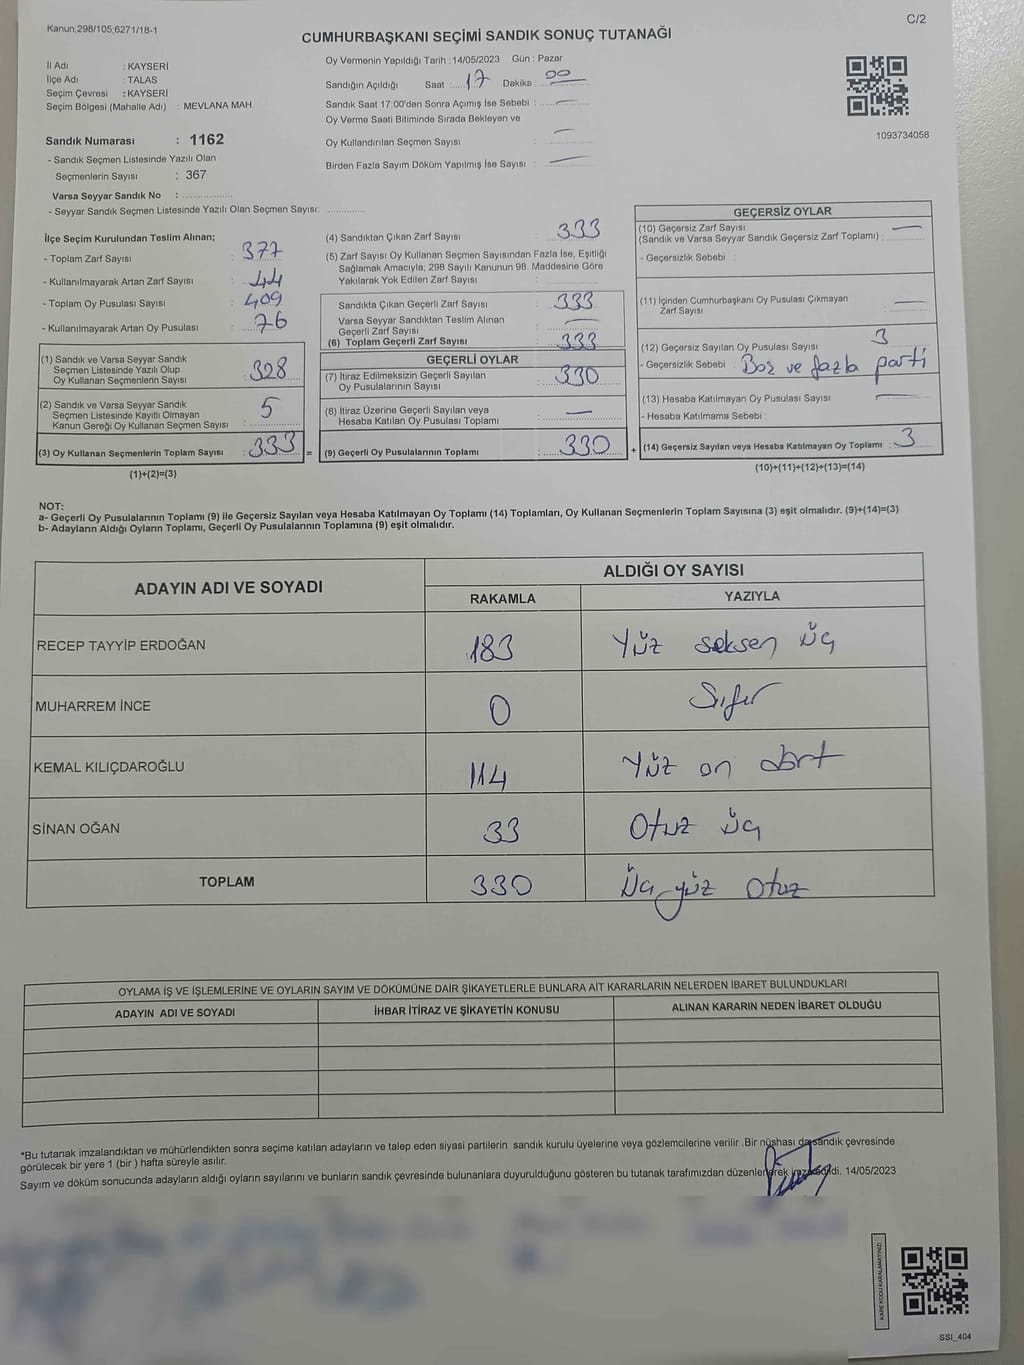 Kanun,298/105;6271/18-1
C/2
CUMHURBAŞKANI SEÇİMİ SANDIK SONUÇ TUTANAĞI
İl Adı : KAYSERİ
İlçe Adı : TALAS
Seçim Çevresi : KAYSERİ
Seçim Bölgesi (Mahalle Adı) : MEVLANA MAH.
Sandık Numarası : 1162
- Sandık Seçmen Listesinde Yazılı Olan
Seçmenlerin Sayısı : 367
Varsa Seyyar Sandık No :
- Seyyar Sandık Seçmen Listesinde Yazılı Olan Seçmen Sayısı:
Oy Vermenin Yapıldığı Tarih : 14/05/2023 Gün : Pazar
Sandığın Açıldığı Saat : 17 Dakika : 00
Sandık Saat 17:00'den Sonra Açımış İse Sebebi : —
Oy Verme Saati Bitiminde Sırada Bekleyen ve
Oy Kullandırılan Seçmen Sayısı : —
Birden Fazla Sayım Döküm Yapılmış İse Sayısı : —
1093734058
İlçe Seçim Kurulundan Teslim Alınan;
- Toplam Zarf Sayısı : 377
- Kullanılmayarak Artan Zarf Sayısı : 44
- Toplam Oy Pusulası Sayısı : 409
- Kullanılmayarak Artan Oy Pusulası : 76
(1) Sandık ve Varsa Seyyar Sandık
Seçmen Listesinde Yazılı Olup
Oy Kullanan Seçmenlerin Sayısı : 328
(2) Sandık ve Varsa Seyyar Sandık
Seçmen Listesinde Kayıtlı Olmayan
Kanun Gereği Oy Kullanan Seçmen Sayısı : 5
(3) Oy Kullanan Seçmenlerin Toplam Sayısı : 333 =
(1)+(2)=(3)
(4) Sandıktan Çıkan Zarf Sayısı : 333
(5) Zarf Sayısı Oy Kullanan Seçmen Sayısından Fazla İse, Eşitliği
Sağlamak Amacıyla; 298 Sayılı Kanunun 98. Maddesine Göre
Yakılarak Yok Edilen Zarf Sayısı :
Sandıkta Çıkan Geçerli Zarf Sayısı : 333
Varsa Seyyar Sandıktan Teslim Alınan
Geçerli Zarf Sayısı : —
(6) Toplam Geçerli Zarf Sayısı : 333
GEÇERLİ OYLAR
(7) İtiraz Edilmeksizin Geçerli Sayılan
Oy Pusulalarının Sayısı : 330
(8) İtiraz Üzerine Geçerli Sayılan veya
Hesaba Katılan Oy Pusulası Toplamı : —
(9) Geçerli Oy Pusulalarının Toplamı : 330 +
GEÇERSİZ OYLAR
(10) Geçersiz Zarf Sayısı : —
(Sandık ve Varsa Seyyar Sandık Geçersiz Zarf Toplamı)
- Geçersizlik Sebebi :
(11) İçinden Cumhurbaşkanı Oy Pusulası Çıkmayan
Zarf Sayısı : —
(12) Geçersiz Sayılan Oy Pusulası Sayısı : 3
- Geçersizlik Sebebi : Boz ve fazla parti
(13) Hesaba Katılmayan Oy Pusulası Sayısı : —
- Hesaba Katılmama Sebebi :
(14) Geçersiz Sayılan veya Hesaba Katılmayan Oy Toplamı : 3
(10)+(11)+(12)+(13)=(14)
NOT:
a- Geçerli Oy Pusulalarının Toplamı (9) ile Geçersiz Sayılan veya Hesaba Katılmayan Oy Toplamı (14) Toplamları, Oy Kullanan Seçmenlerin Toplam Sayısına (3) eşit olmalıdır. (9)+(14)=(3)
b- Adayların Aldığı Oyların Toplamı, Geçerli Oy Pusulalarının Toplamına (9) eşit olmalıdır.
ADAYIN ADI VE SOYADI
ALDIĞI OY SAYISI
RAKAMLA YAZIYLA
RECEP TAYYİP ERDOĞAN 183 Yüz seksen üç
MUHARREM İNCE 0 Sıfır
KEMAL KILIÇDAROĞLU 114 Yüz on dört
SİNAN OĞAN 33 Otuz üç
TOPLAM 330 Üç yüz otuz
OYLAMA İŞ VE İŞLEMLERİNE VE OYLARIN SAYIM VE DÖKÜMÜNE DAİR ŞİKAYETLERLE BUNLARA AİT KARARLARIN NELERDEN İBARET BULUNDUKLARI
ADAYIN ADI VE SOYADI İHBAR İTİRAZ VE ŞİKAYETİN KONUSU ALINAN KARARIN NEDEN İBARET OLDUĞU
*Bu tutanak imzalandıktan ve mühürlendikten sonra seçime katılan adayların ve talep eden siyasi partilerin sandık kurulu üyelerine veya gözlemcilerine verilir .Bir nüshası da sandık çevresinde
görülecek bir yere 1 (bir ) hafta süreyle asılır.
Sayım ve döküm sonucunda adayların aldığı oyların sayılarını ve bunların sandık çevresinde bulunanlara duyurulduğunu gösteren bu tutanak tarafımızdan düzenlenerek imza edildi. 14/05/2023
KARE KODU KARALAMAYINIZ!
SSI_404